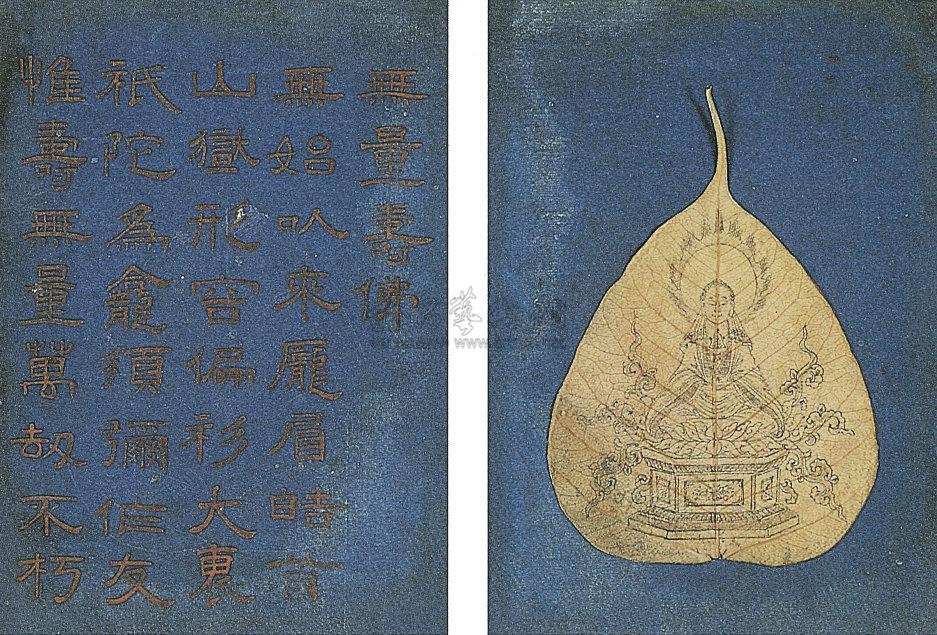 無量壽佛
無始以來龐眉皓首
山嶽形容偏衫大褎
祇陀為龕須彌作友
惟壽無量萬劫不朽